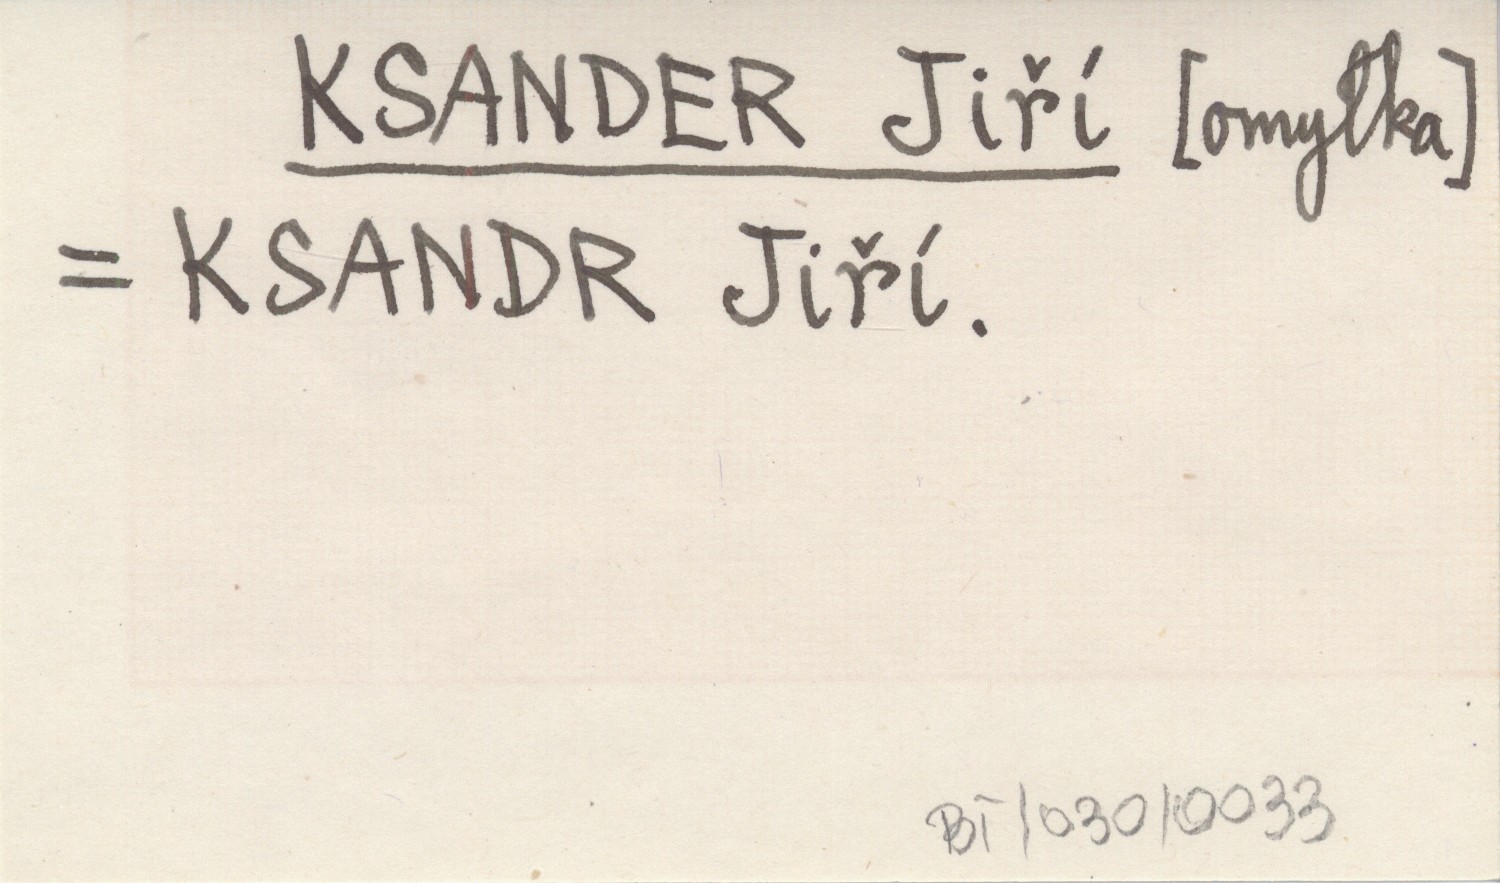 KSANDER Jiří [omyłka]
= KSANDR Jiří.
BT/030/0033